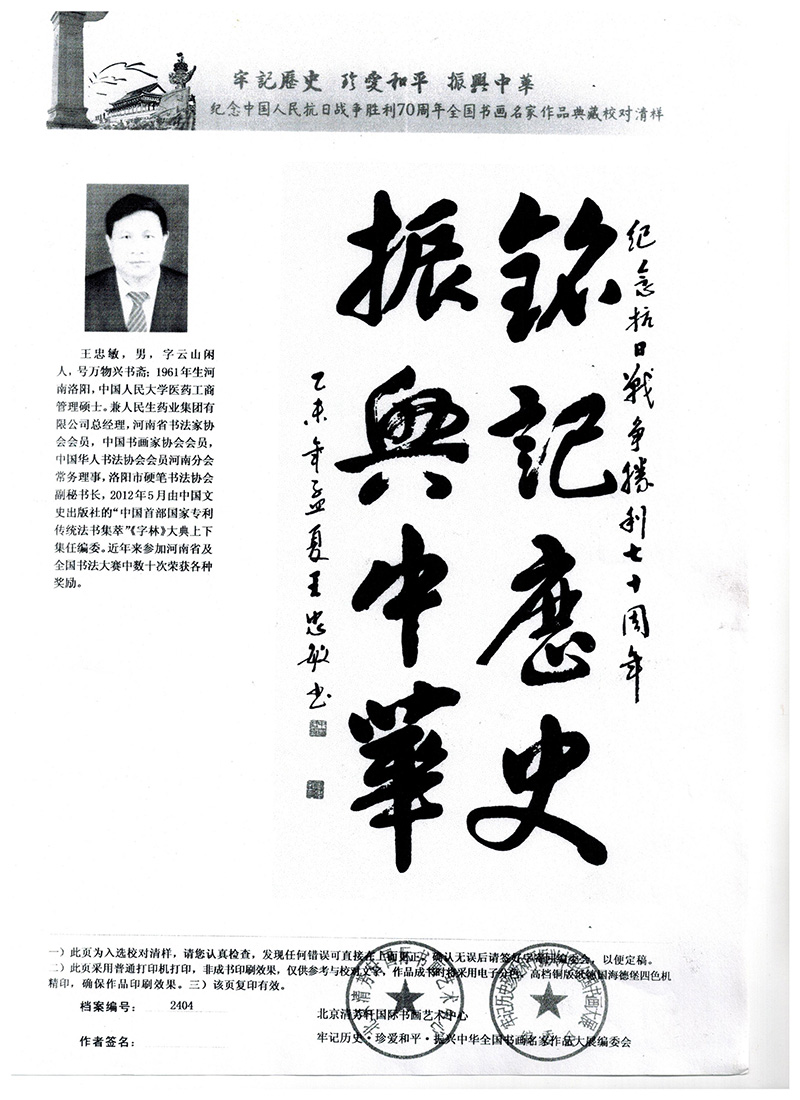 牢記歷史 珍愛和平 振興中華
纪念中国人民抗日战争胜利70周年全国书画名家作品典藏校对清样
纪念抗日戰争勝利七十周年
銘記歷史
振興中華
乙未年孟夏王忠敏书
王忠敏，男，字云山闲
人，号万物兴书斋；1961年生河
南洛阳，中国人民大学医药工商
管理硕士。兼人民生药业集团有
限公司总经理，河南省书法家协
会会员，中国书画家协会会员，
中国华人书法协会会员河南分会
常务理事，洛阳市硬笔书法协会
副秘书长，2012年5月由中国文
史出版社的“中国首部国家专利
传统法书集萃”《字林》大典上下
集任编委。近年来参加河南省及
全国书法大赛中数十次荣获各种
奖励。
一）此页为入选校对清样，请您认真检查，发现任何错误可直接在上面更正，确认无误后请签好字寄回编委会，以便定稿。
二）此页采用普通打印机打印，非成书印刷效果，仅供参考与校对文字，作品成书时将采用电子分色，高档铜版纸德国海德堡四色机
精印，确保作品印刷效果。三）该页复印有效。
档案编号： 2404
北京清芳轩国际书画艺术中心
作者签名：
牢记历史·珍爱和平·振兴中华全国书画名家作品大展编委会